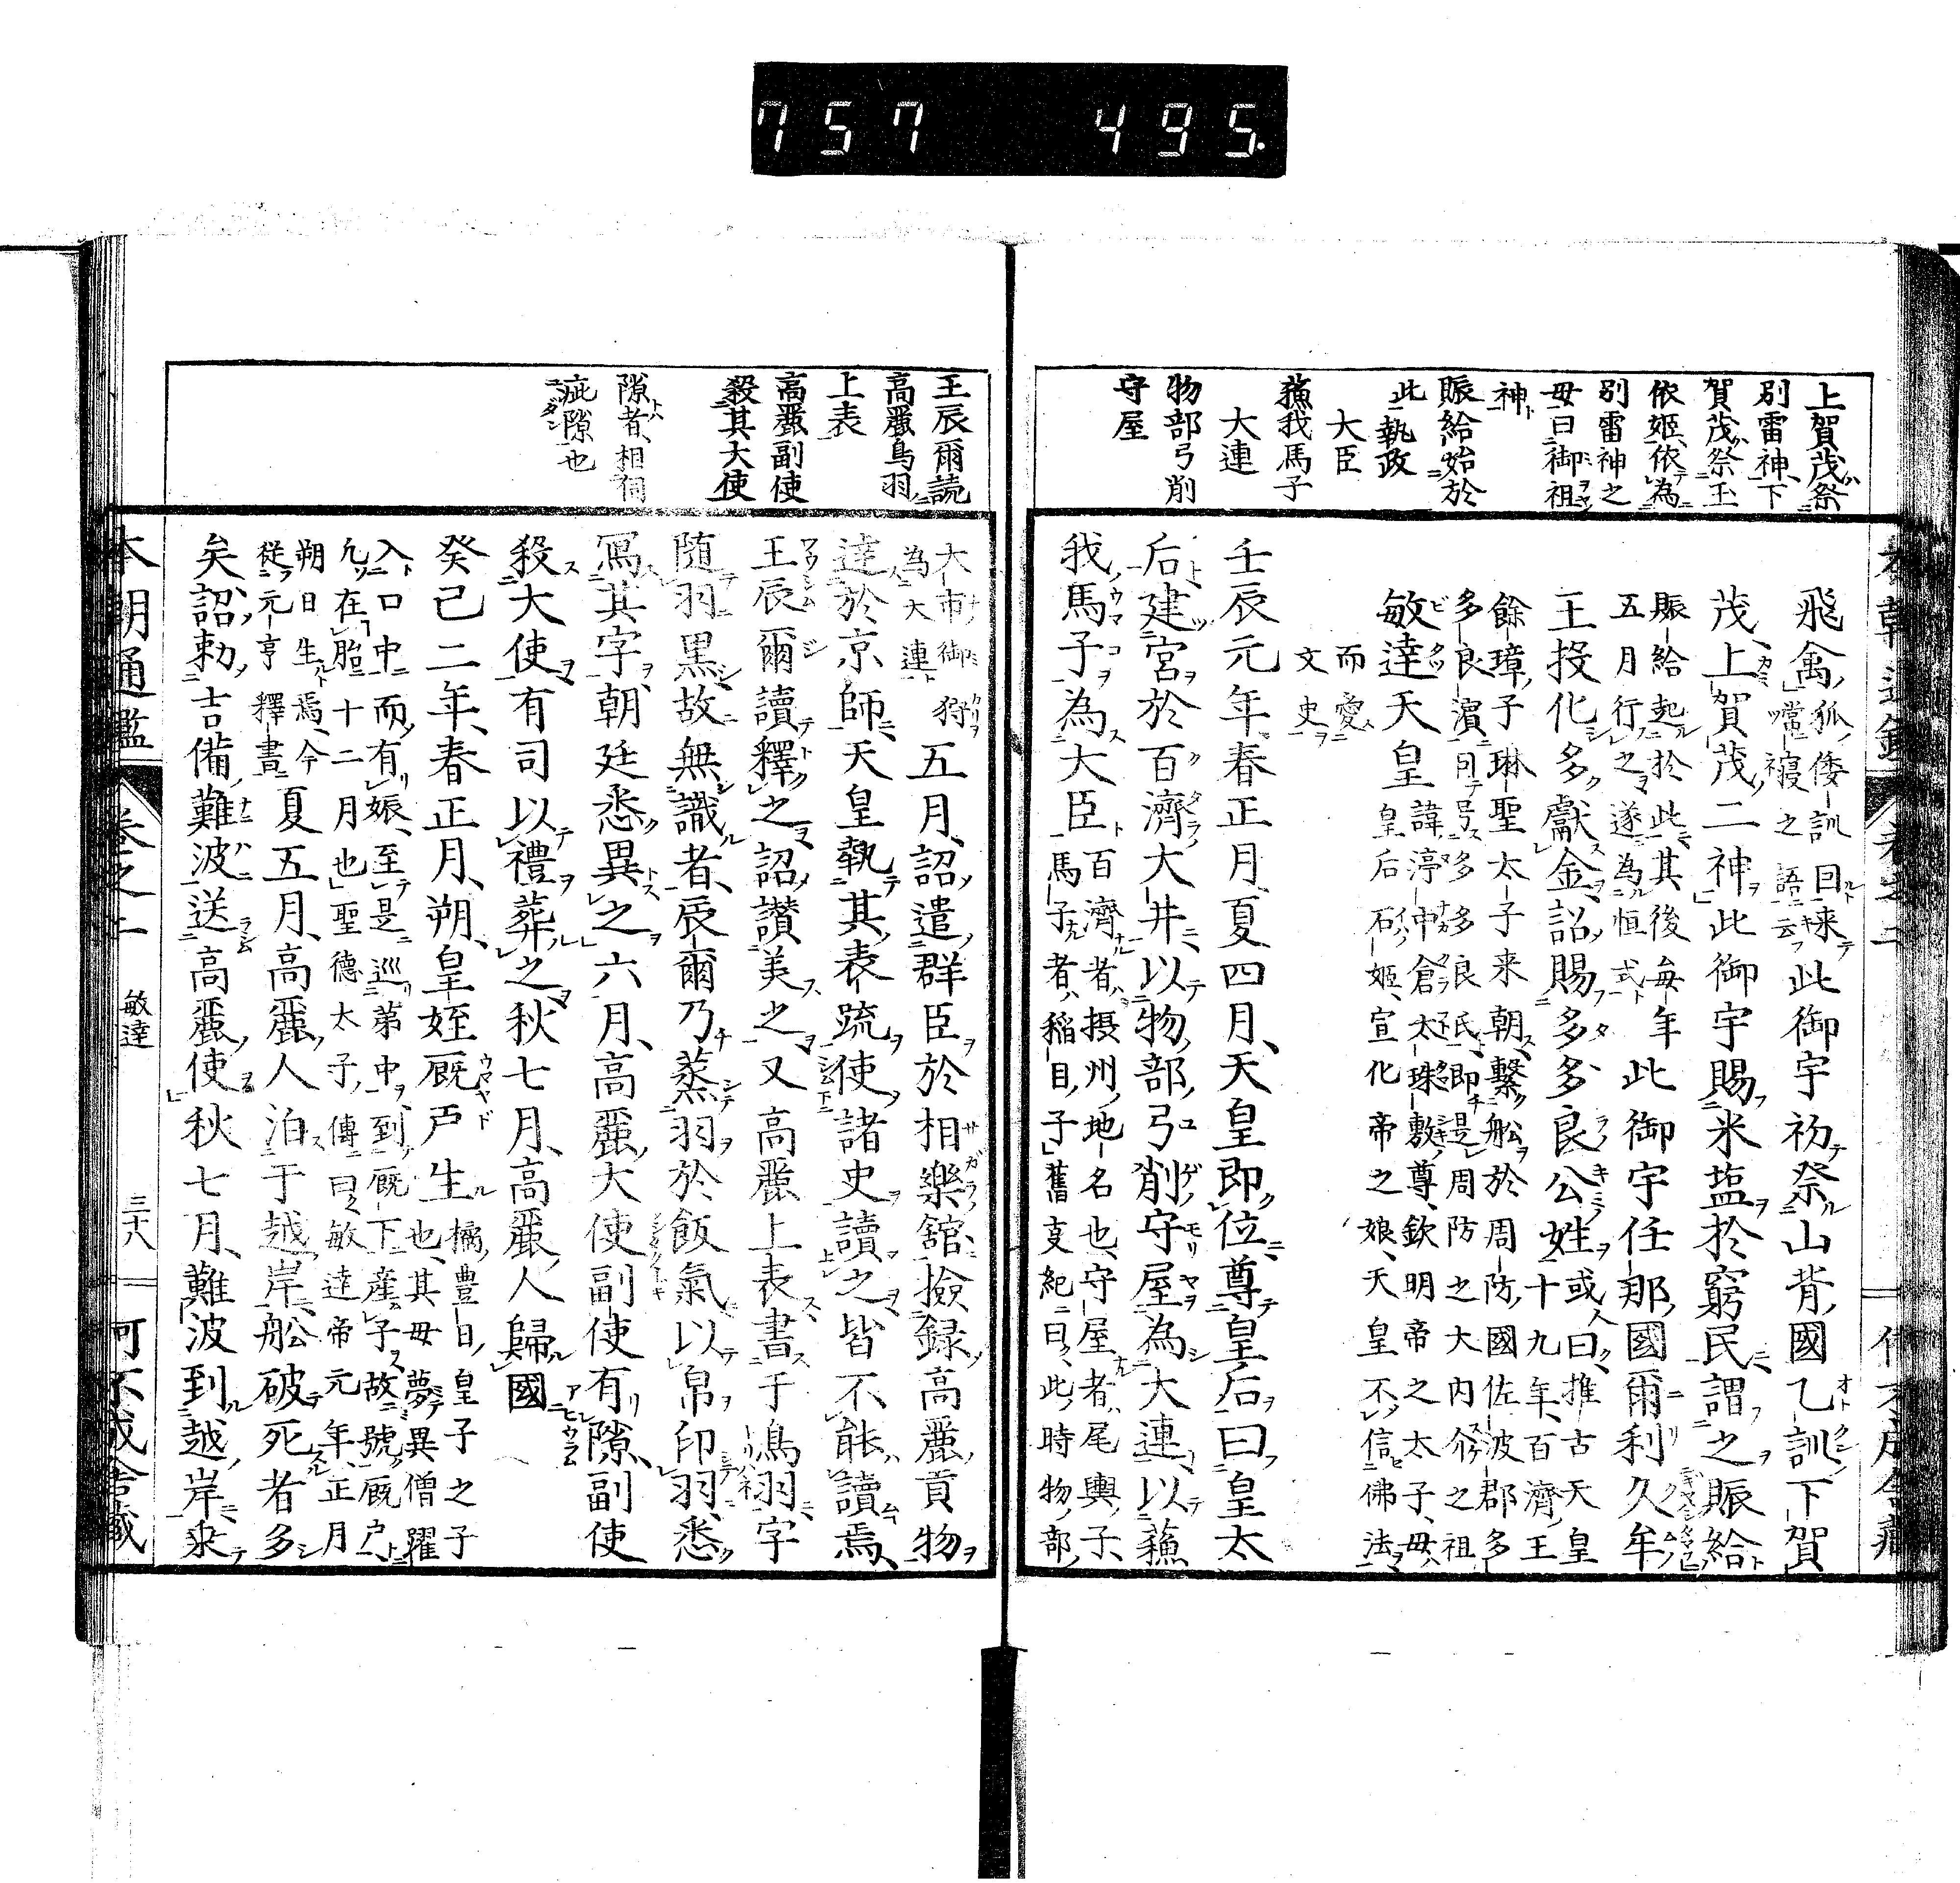 757 495.
上賀茂祭
別雷神、下
賀茂祭玉
依姬、依為
別雷神之
母曰御祖
神
賑給始於
此
執政
大臣
蘓我馬子
大連
物部弓削
守屋
飛禽狐倭訓曰来
嘗寝之語云
此御宇初祭山背國乙訓下賀
茂上賀茂二神此御宇賜米塩於窮民謂之賑給
賑給起於此其後毎年
五月行之遂為恒式
此御宇任那國爾利久牟
王投化多獻金詔賜多多良公姓
或曰推古天皇
十九年百濟王
餘璋子琳聖太子来朝繫舩於周防國佐波郡多
多良濱因号多多良氏即是周防之大内介之祖
敏達天皇
諱渟中倉太珠敷尊欽明帝之太子母
皇后石姬宣化帝之娘天皇不信佛法
而愛
文史
壬辰元年春正月、夏四月、天皇即位尊皇后曰皇太
后建宮於百濟大井以物部弓削守屋為大連以蘓
我馬子為大臣
百濟者摂州地名也、守屋者尾輿子、
馬子者稲目子舊事紀曰此時物部
王辰爾読
高麗烏羽
上表
高麗副使
殺其大使
隙者相伺
疵隙也
大市御狩
為大連
五月、詔遣群臣於相樂舘撿録高麗貢物
達於京師天皇執其表疏使諸史讀之皆不能讀焉、
王辰爾讀釋之詔讃美之又高麗上表書于烏羽字
随羽黒故無識者辰爾乃蒸羽於飯氣以帛印羽悉
寫其字朝廷悉異之六月、高麗大使副使有隙副使
殺大使有司以禮葬之秋七月、高麗人歸國
癸巳二年、春正月、朔、皇姪厩戸生
橘豊日皇子之子
也其母夢異僧躍
入口中而有娠至是巡第中到厩下産子故號厩戸
九在胎十二月也聖德太子傳曰敏達帝元年正月
朔日生焉今
従元亨釋書
夏五月、高麗人泊于越岸舩破死者多
矣詔勅吉備難波送高麗使秋七月、難波到越岸来
本朝通鑑 卷之二 敏達 三十八